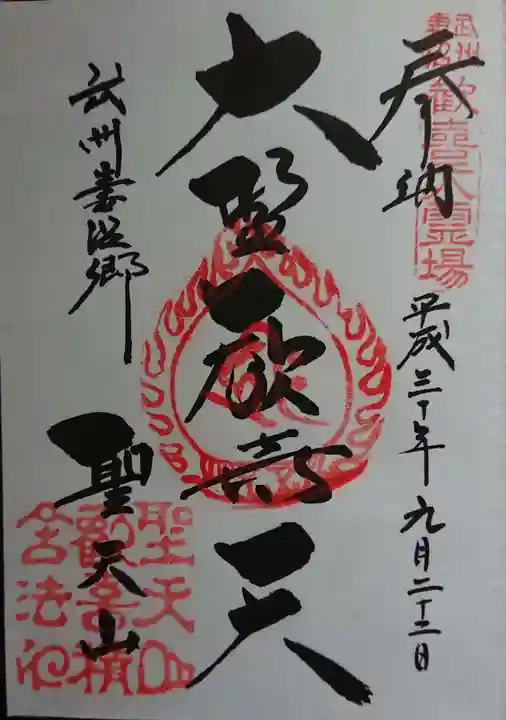 奉納
平成三十年九月二十二日
大聖歓喜天
武州妻沼郷
聖天山
武州妻沼
歓喜天霊場
聖天山
歓喜